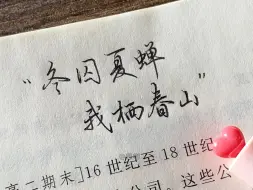 “冬囚夏蝉
我栖春山”
高二期末]16世纪至18世纪
公司。这些公